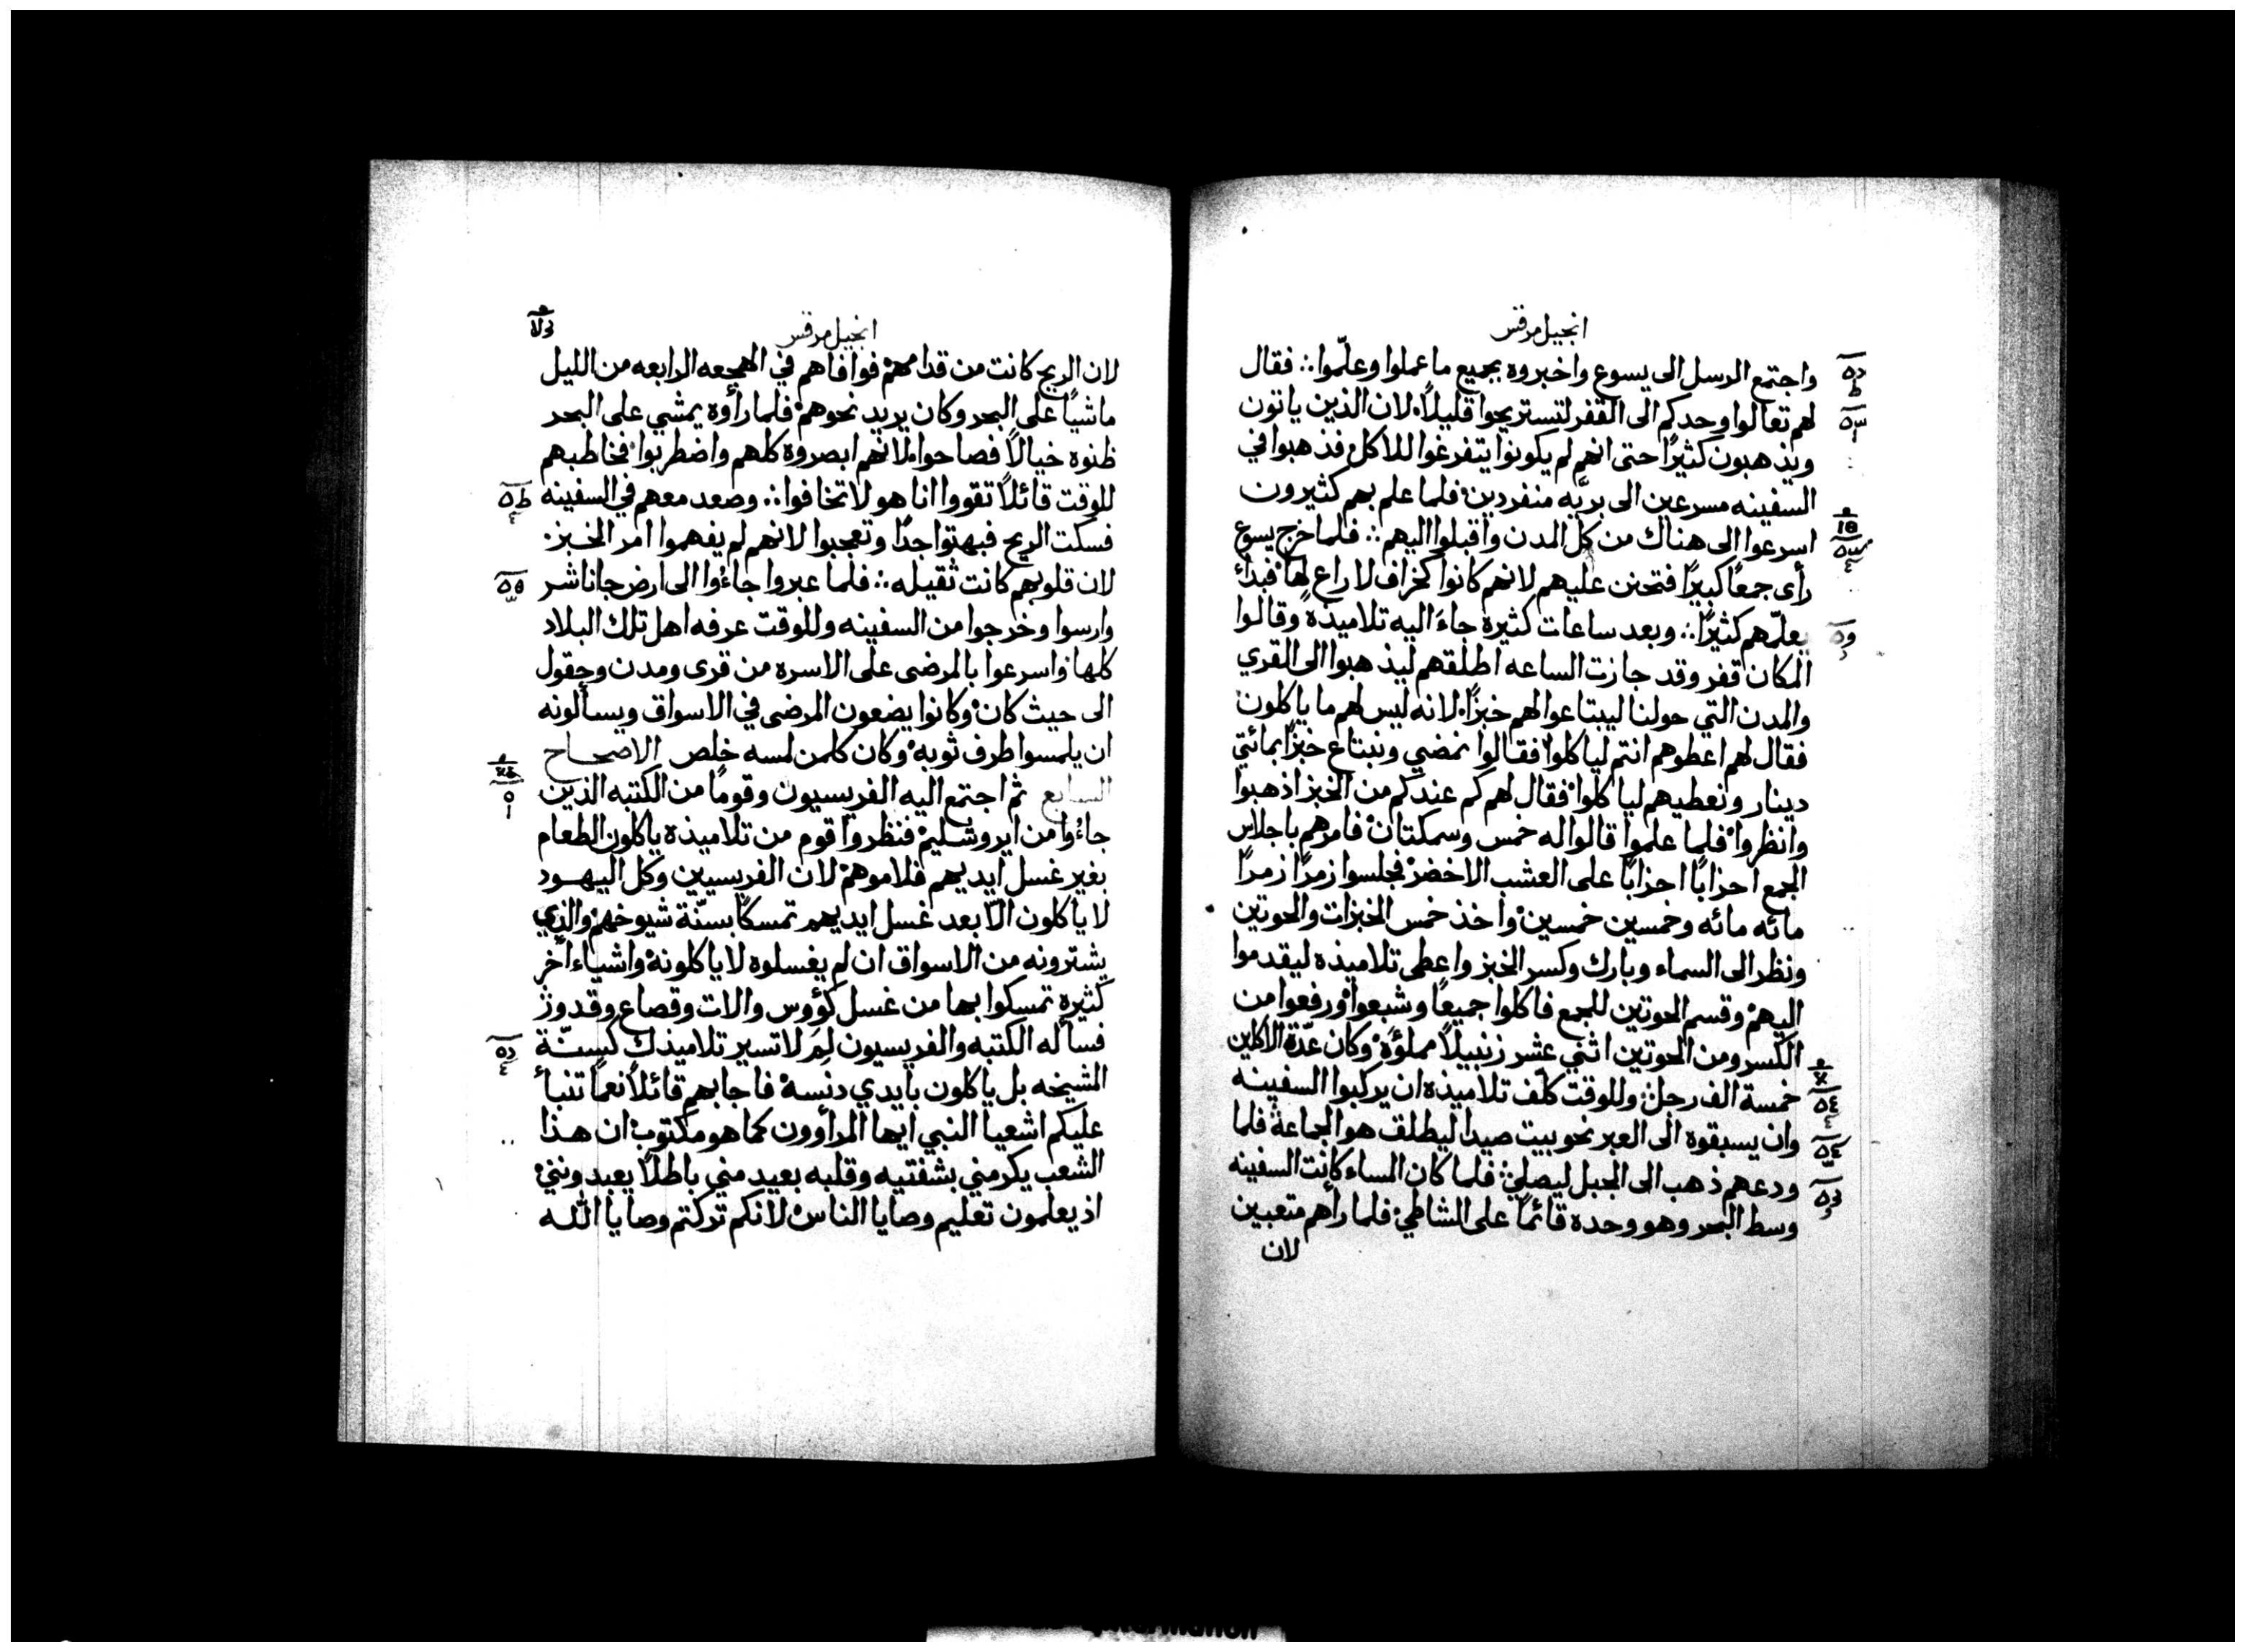 انجيل مرقس
واجتمع الرسل الى يسوع واخبروه بجميع ما عملوا وعلّموا ፨ فقال
لهم تعالوا وحدكم الى القفر لتستريحوا قليلاً. لان الذين ياتون
ويذهبون كثيرًا حتى انهم لم يكونوا يتفرغوا للاكل فذهبوا في
السفينه مسرعين الى بريّه منفردين فلما علم بهم كثيرون
اسرعوا الى هناك من كل المدن واقبلوا اليهم ፨ فلما خرج يسوع
رأى جمعًا كبيرًا فتحنن عليهم لانهم كانوا كخراف لا راعٍ لها فبدأ
يعلّمهم كثيرًا ፨ وبعد ساعات كثيره جاءَ اليه تلاميذه وقالوا
المكان قفر وقد جازت الساعه اطلقهم ليذهبوا الى القري
والمدن التي حولنا ليبتاعوا لهم خبزًا. لانه ليس لهم ما ياكلون
فقال لهم اعطوهم انتم لياكلوا فقالوا نمضي ونبتاع خبزًا بمائتي
دينار ونعطيهم لياكلوا فقال لهم كم عندكم من الخبز اذهبوا
وانظروا فلما علموا قالوا له خمس وسمكتان فامرهم باجلاس
الجمع احزابًا احزابًا على العشب الاخضر فجلسوا زمرًا زمرًا
مائه مائه وخمسين خمسين واخذ خمس الخبزات والحوتين
ونظر الى السماء وبارك وكسر الخبز واعطى تلاميذه ليقدموا
اليهم وقسم الحوتين للجمع فاكلوا جميعًا وشبعوا ورفعوا من
الكسر ومن الحوتين اثني عشر زنبيلاً مملؤة وكان عدّة الاكلين
خمسة الف رجل وللوقت كلّف تلاميذه ان يركبوا السفينه
وان يسبقوه الى العبر نحو بيت صيدا ليطلق هو الجماعة فلما
ودعهم ذهب الى الجبل ليصلي فلما كان المساء كانت السفينه
وسط البحر وهو وحده قائمًا على الشاطي فلما راهم متعبين
لان
انجيل مرقس
لان الريح كانت من قدامهم فوافاهم في الهجعه الرابعه من الليل
ماشيًا على البحر وكان يريد نحوهم فلما رأوه يمشي على البحر
ظنوه خيالاً فصاحوا. لانهم ابصروه كلهم واضطربوا فخاطبهم
للوقت قائلاً تقووا انا هو لا تخافوا ፨ وصعد معهم في السفينه
فسكت الريح فبهتوا جدًا وتعجبوا لانهم لم يفهموا امر الخبز.
لان قلوبهم كانت ثقيله ፨ فلما عبروا جاءُوا الى ارض جاناشر
وارسوا وخرجوا من السفينه وللوقت عرفه اهل تلك البلاد
كلها واسرعوا بالمرضى على الاسره من قرى ومدن وحقول
الى حيث كان وكانوا يضعون المرضى في الاسواق ويسألونه
ان يلمسوا طرف ثوبه وكان كلمن لمسه خلص الاصحاح
السابع ثم اجتمع اليه الفريسيون وقومًا من الكتبه الذين
جاءُوا من ايروشليم فنظروا قوم من تلاميذه ياكلون الطعام
بغير غسل ايديهم فلاموهم لان الفريسيين وكل اليهود
لا ياكلون الّا بعد غسل ايديهم تمسكًا بسنّة شيوخهم والذي
يشترونه من الاسواق ان لم يغسلوه لا ياكلونه واشياء اخر
كثيره تمسكوا بها من غسل كؤوس والات وقصاع وقدوز
فسأله الكتبه والفريسيون لِمَ لا تسير تلاميذك كسنّة
المشيخه بل ياكلون بايدي دنِسه فاجابهم قائلاً نعمًا تنبأ
عليكم اشعيا النبي ايها المرأوون كما هو مكتوب ان هذا
الشعب يكرمني بشفتيه وقلبه بعيد مني باطلاً يعبدونني
اذ يعلمون تعليم وصايا الناس لانكم تركتم وصايا الله